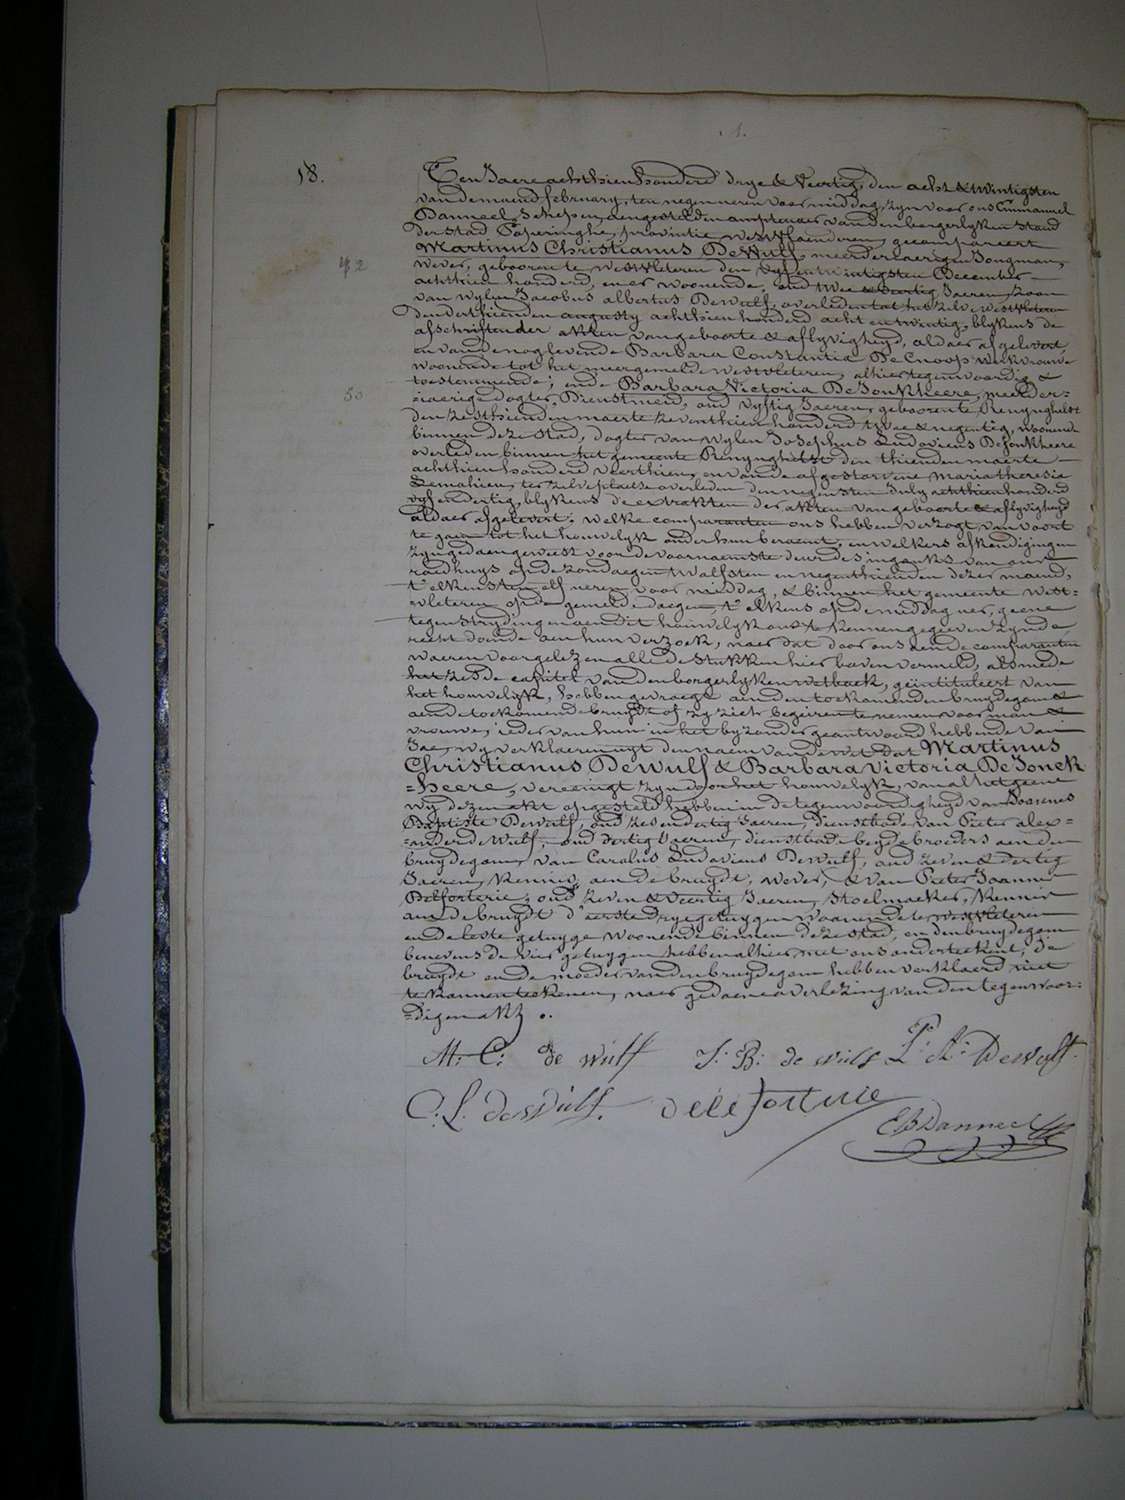 .1.
18.
Ten Jaere achthienhonderd drye & Veertig, den acht & twintigsten
van de maend february, ten negen uren voormiddag, zyn voor ons Emmanuel
Danneel, Schepen, aengesteld den amptenaer van den borgerlyken stand
der stad Poperinghe, provintie westvlaenderen, gecompareert
Martinus Christianus DeWulf, meerderjaerigen Jongman,
42
wever, geboren te westvleteren den vyfentwintigsten December
achthien honderd, en er woonende, oud twee & veertig Jaeren, zoon
van wylen Jacobus albertus DeWulf, overleden tot het zelve westvleteren
den derthienden augusty achthien honderd acht en twintig, blykens de
afschriften der akten van geboorte & aflyvigheyd, aldaer afgelevert,
en van de nog levende Barbara Constantia De Cnoop werkvrouwe
woonende tot het meergemelde westvleteren, alhier tegenwoordig &
toestemmende; ende Barbara Victoria DeJonkheere, meerder-
50
jaerige dogter, Dienstmeid, oud vyftig Jaeren, geboren te Renynghelst
den zesthienden maerte zeventhien honderd twee & negentig, woonende
binnen deze stad, dogter van wylen Josephus Ludovicus DeJonkheere
overleden binnen het gemeente Renynghelst den thienden maerte
achthien honderd veerthien, en van de afgestorvene Maria theresia
Lemahieu, ter zelve plaetse overleden den negensten July achthien honderd
vyf en dertig, blykens de extrakten der akten van geboorte & aflyvigheyd
aldaer afgelevert; welke comparanten ons hebben verzogt van voort
te gaen tot het houwelyk onder hun beraemt, en welkers afkondigingen
zyn gedaen geweest voor de voornaemste deur des ingank van ons
raedhuys op de zondagen twalfsten en negenthienden dezer maend,
t'elkens ten elf uren voor middag, & binnen het gemeente West-
=vleteren op de gemelde dagen t'elkens op de middag uer, geene
tegenstrydingen aen dit houwelyk ons te kennen gegeven zynde,
recht doende aen hun verzoek, naer dat door ons aen de comparanten
waeren voorgelezen alle de stukken hier boven vermeld, alsmede
het zesde capitel van den borgerlyken wetboek, geïntituleert van
het houwelyk, hebben gevraegt aen den toekomende bruydegom &
aen de toekomende bruydt of zy zich begeiren te nemen voor man &
vrouwe; ieder van hun in het byzonder geantwoord hebbende van
Jae, wy verklaeren uyt den naem van de wet dat Martinus
Christianus DeWulf & Barbara Victoria DeJonck
=heere, vereenigt zyn door het houwelyk, van al hetgeene
wy dezen akt opgesteld hebben in de tegenwoordigheyd van Joannes
Baptiste Dewulf, oud zes en dertig Jaeren, Dienstbode van Pieter alex-
=ander de Wulf, oud dertig Jaeren, dienstbode beyde broeders aen den
bruydegom, van Carolus Ludovicus DeWulf, oud zeven & dertig
Jaeren, Kennis aen de bruydt, wever, & van Pieter Joannes
Delforterie, oud zeven & Veertig Jaeren, Stoelmaeker, Kennis
aen de bruydt d'eerste drye getuygen woonende te westvleteren
en de leste getuyge woonende binnen deze stad, en den bruydegom
benevens de vier getuygen hebben alhier met ons onderteekent, de
bruydt en de moeder van den bruydegom hebben verklaerd niet
te kunnen teekenen, naer gedaene voorlezing van den tegenwoor-
=digen akt ..
M: C: de wulf J: B: de wulf P: A: Dewulf.
C. L. de Wulf. Deleforterie
E B Danneel